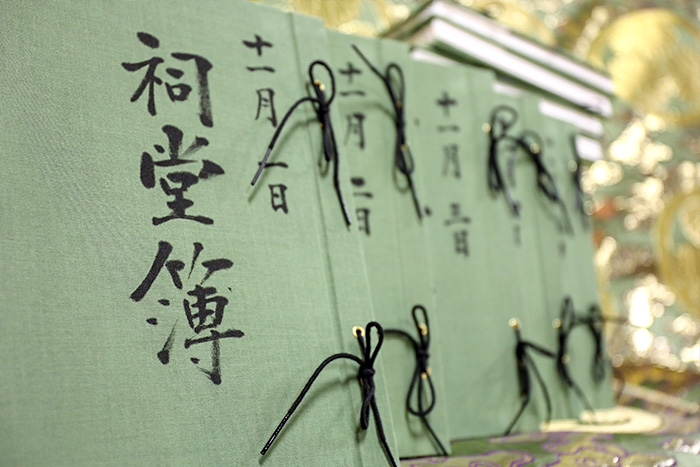 祠堂簿
十一月一日
十一月二日
十一月三日